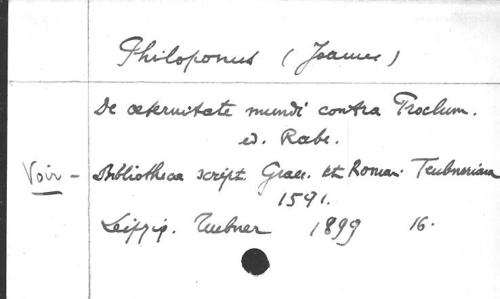 Philoponus (Joannes)
De aeternitate mundi contra Proclum.
ed. Rabe.
Voir - Bibliotheca script. Graec. et Roman. Teubneriana
1591.
Leipzig. Teubner 1899 16.